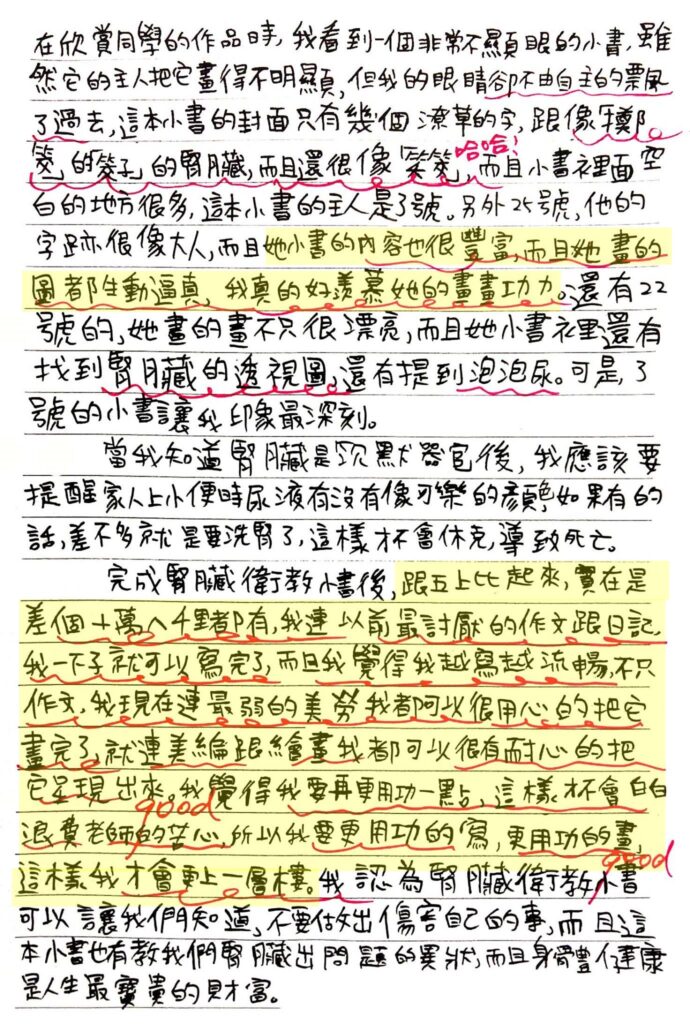 在欣賞同學的作品時，我看到一個非常不顯眼的小書，雖
然它的主人把它畫得不明顯，但我的眼睛卻不由自主的飄
了過去，這本小書的封面只有幾個潦草的字，跟像「
的「筊子」的腎臟，而且還很像「笑笑」，而且小書裡面空
哈哈！
白的地方很多，這本小書的主人是3號。另外25號，他的
字跡很像大人，而且她小書的內容也很豐富，而且她畫的
圖都生動逼真，我真的好羨慕她的畫畫功力。還有22
號的，她畫的畫不只很漂亮，而且她小書裡還有
找到腎臟的透視圖，還有提到泡泡尿。可是，3
號的小書讓我印象最深刻。
當我知道腎臟是沉默器官後，我應該要
提醒家人上小便時尿液有沒有像可樂的顏色如果有的
話，差不多就是要洗腎了，這樣才不會休克，導致死亡。
完成腎臟衛教小書後，跟五上比起來，實在是
差個十萬八千里都有，我連以前最討厭的作文跟日記，
我一下子就可以寫完了，而且我覺得我越寫越流暢，不只
作文，我現在連最弱的美勞我都可以很用心的把它
畫完了，就連美編跟繪畫我都可以很有耐心的把
它呈現出來。我覺得我要再更用功一點，這樣才不會白白
good
浪費老師的苦心，所以我要更用功的寫，更用功的畫，
good
這樣我才會更上一層樓。我認為腎臟衛教小書
可以讓我們知道，不要做出傷害自己的事，而且這
本小書也有教我們腎臟出問題的異狀，而且身體健康
是人生最寶貴的財富。